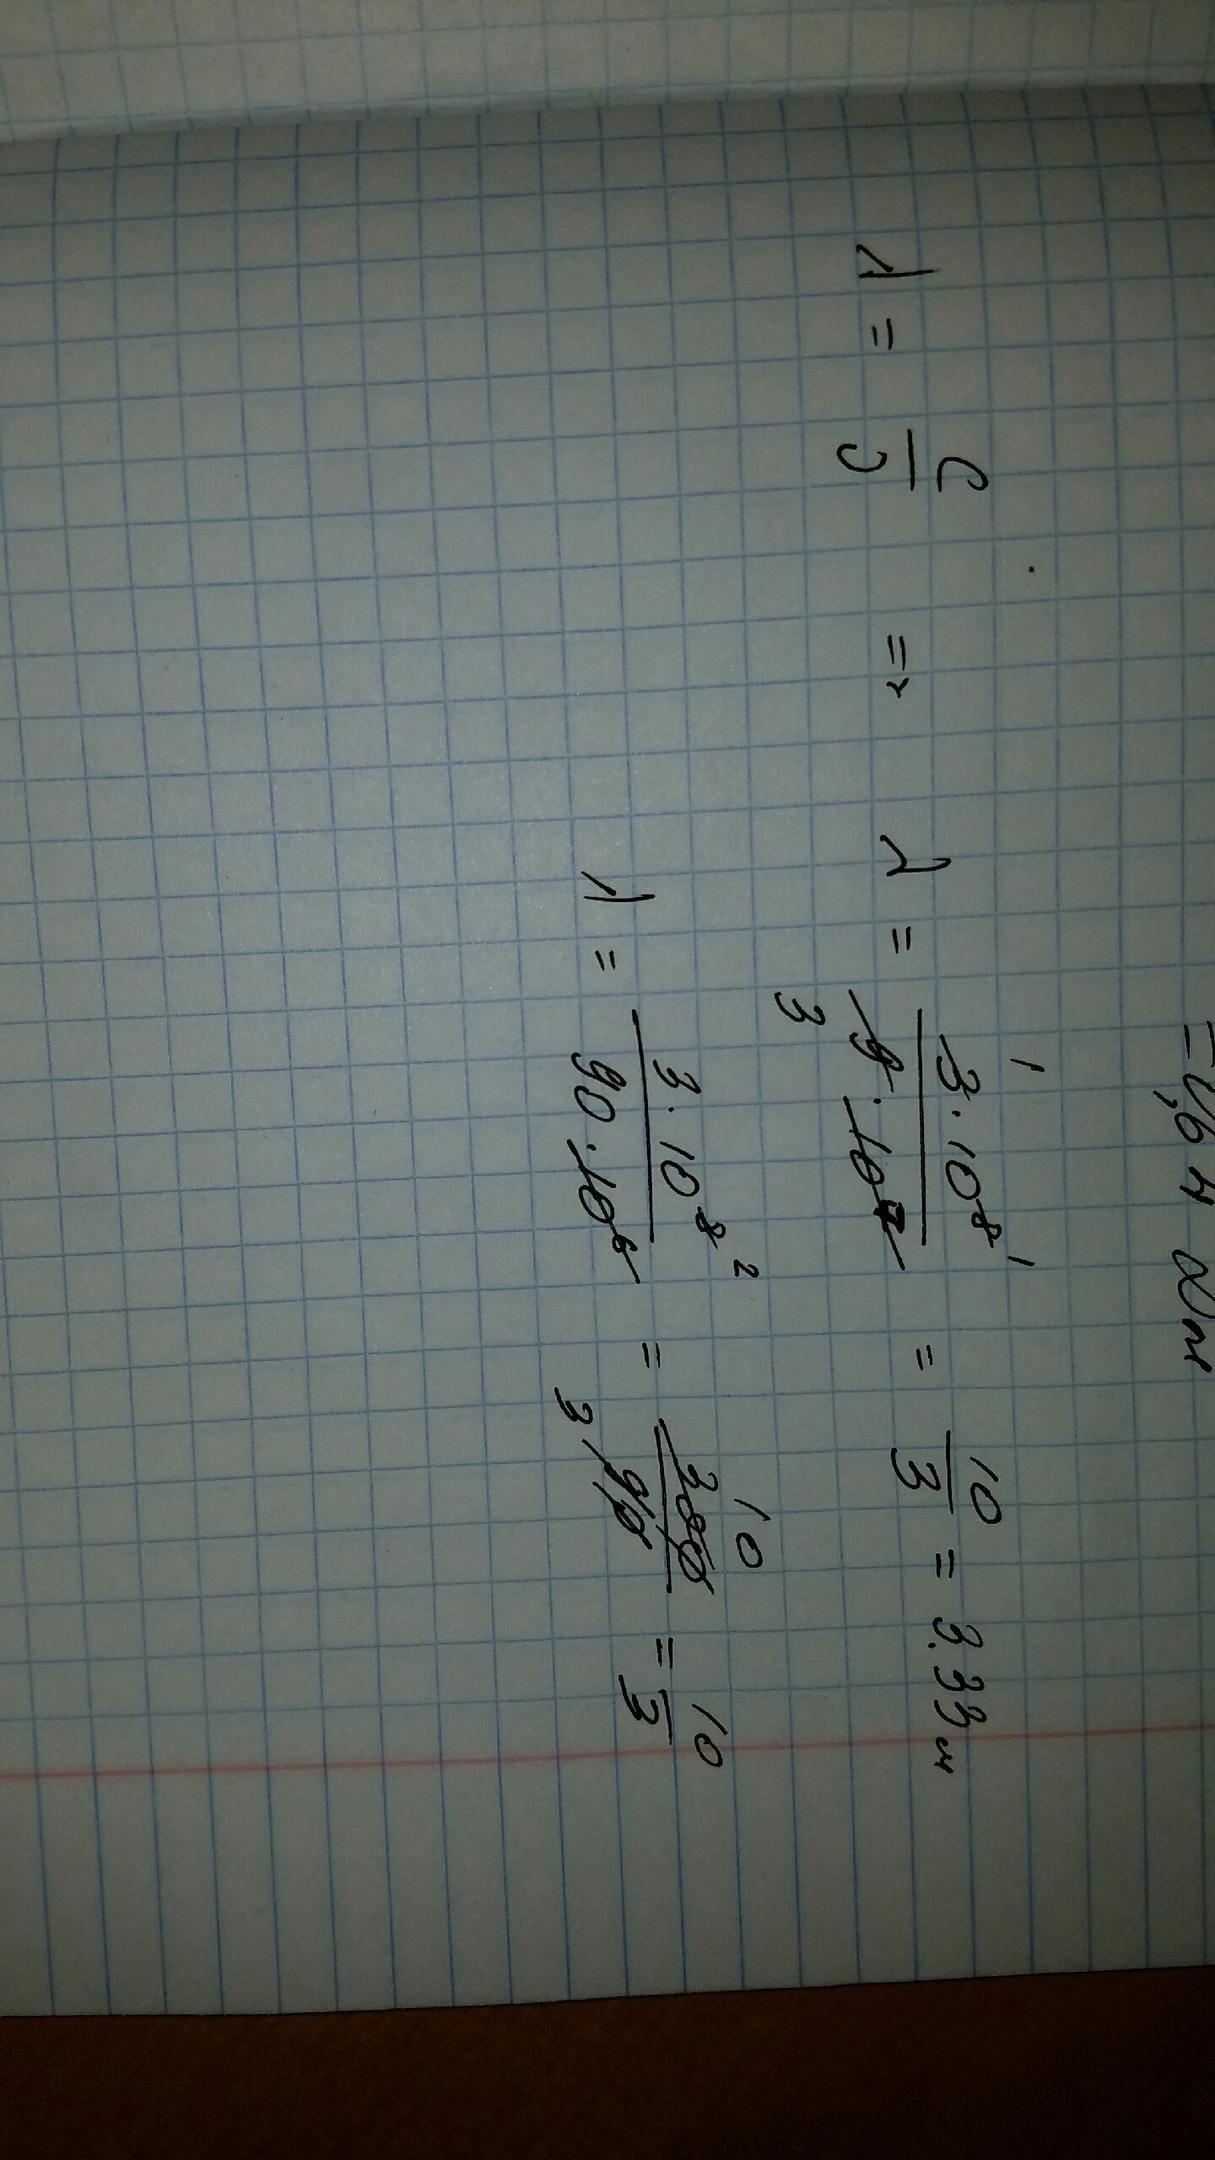 λ = c/υ => λ = 3·10⁸/9·10⁷ = 10/3 = 3.33 м
λ = 3·10⁸/90·10⁶ = 300/90 = 10/3